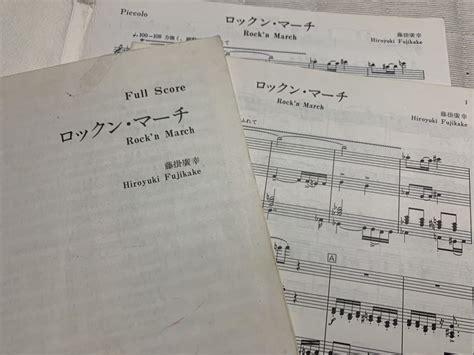 Piccolo
ロックン・マーチ
Rock'n March
藤掛廣幸
Hiroyuki Fujikake
♩=100~108
Full Score
ロックン・マーチ
Rock'n March
藤掛廣幸
Hiroyuki Fujikake
ロックン・マーチ
Rock'n March
1
藤掛廣幸
Hiroyuki Fujikake
A